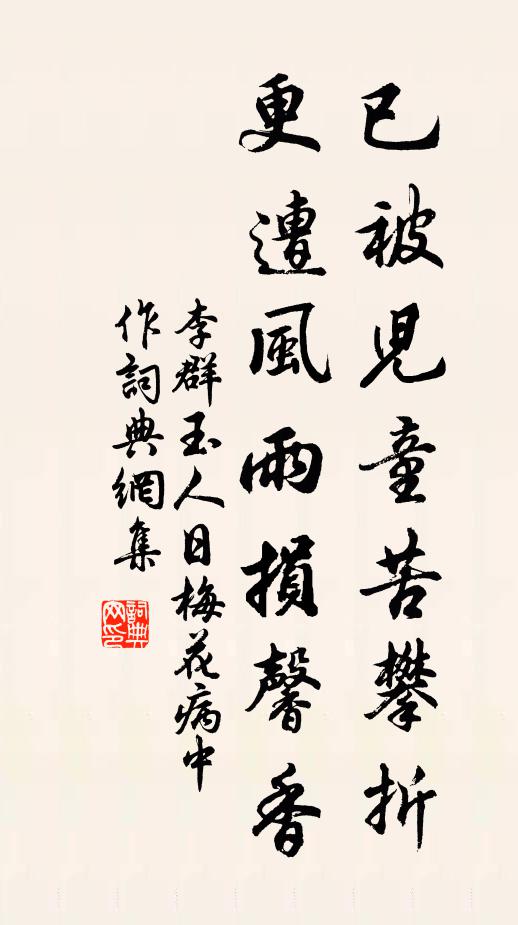 已被兒童苦攀折
更遭風雨損馨香
李群玉人日梅花病中
作詞典網集
詞典
网印